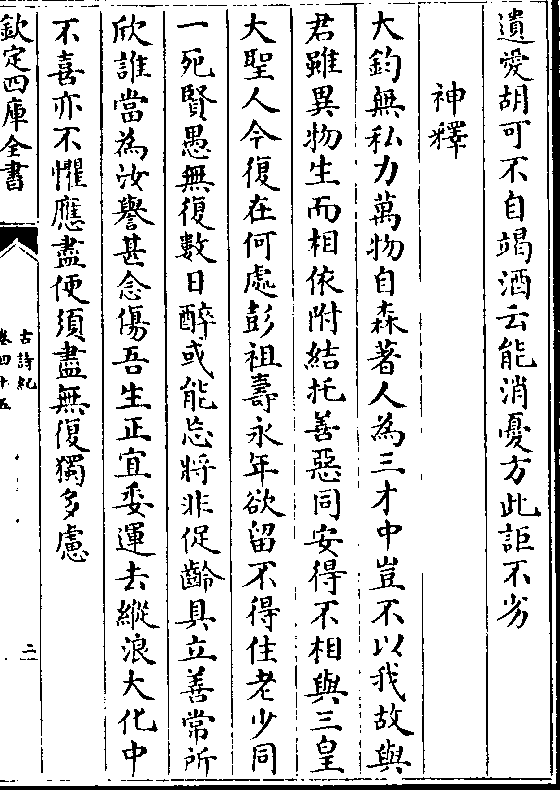 遺愛胡可不自竭酒云能消憂方此詎不劣
神釋
大鈞無私力萬物自森著人為三才中豈不以我故與
君雖異物生而相依附結托善惡同安得不相與三皇
大聖人今復在何處彭祖壽永年欲留不得住老少同
一死賢愚無復數日醉或能忘將非促齡具立善常所
欣誰當為汝譽甚念傷吾生正宜委運去縱浪大化中
不喜亦不懼應盡便須盡無復獨多慮
欽定四庫全書
古詩紀
卷四十五
二